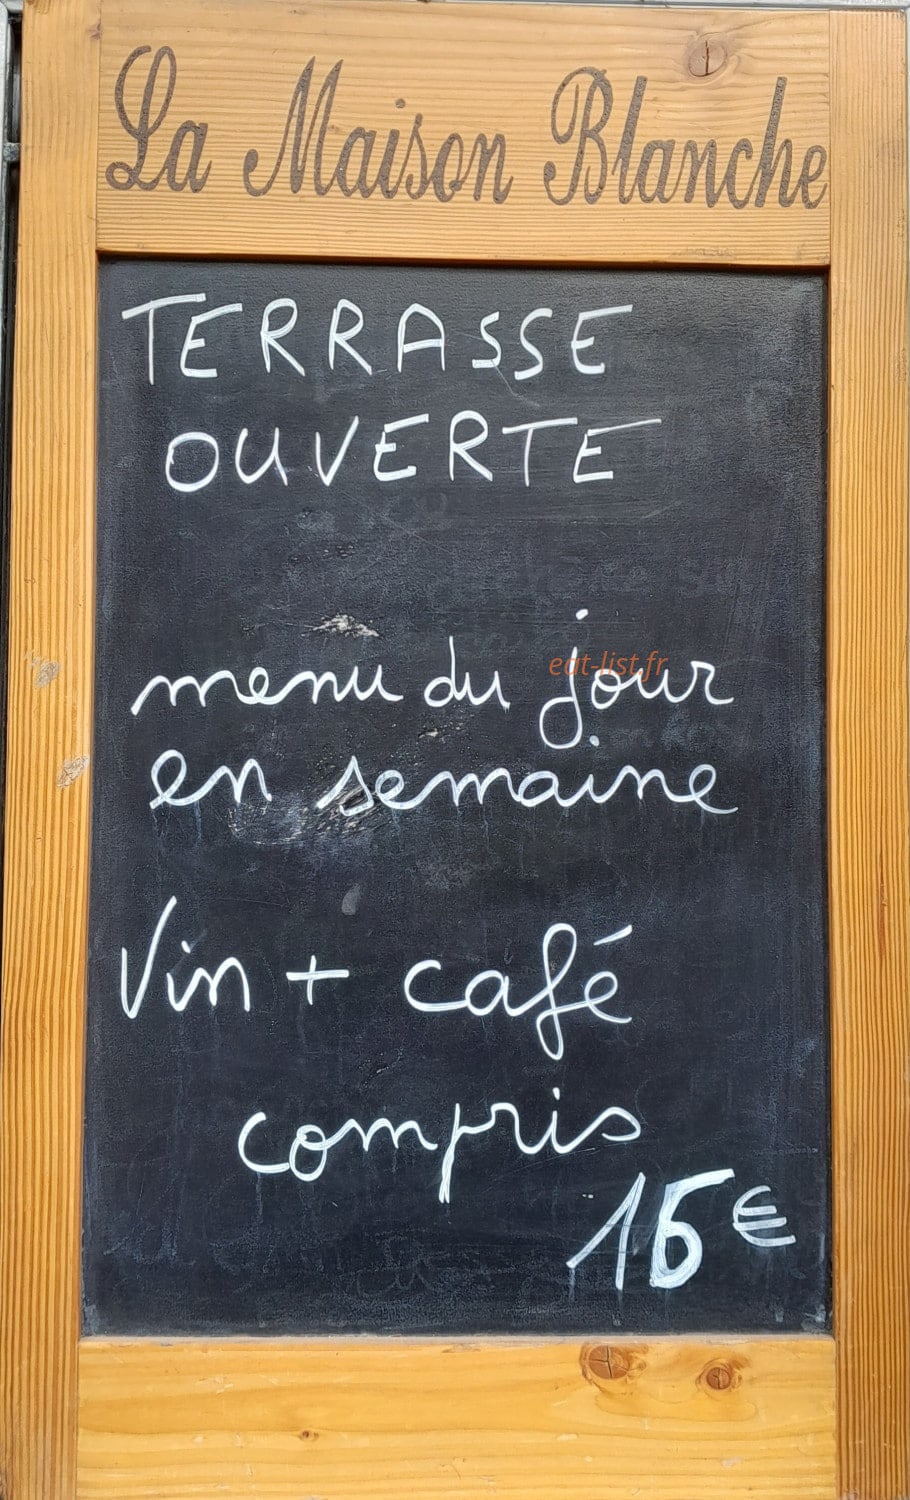 La Maison Blanche
TERRASSE
OUVERTE
menu du jour
eat-list.fr
en semaine
Vin + café
compris